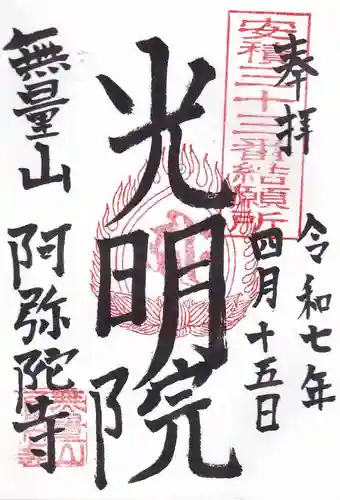 奉拝
安積三十三番結願所
令和七年
四月十五日
光明院
無量山
阿弥陀寺